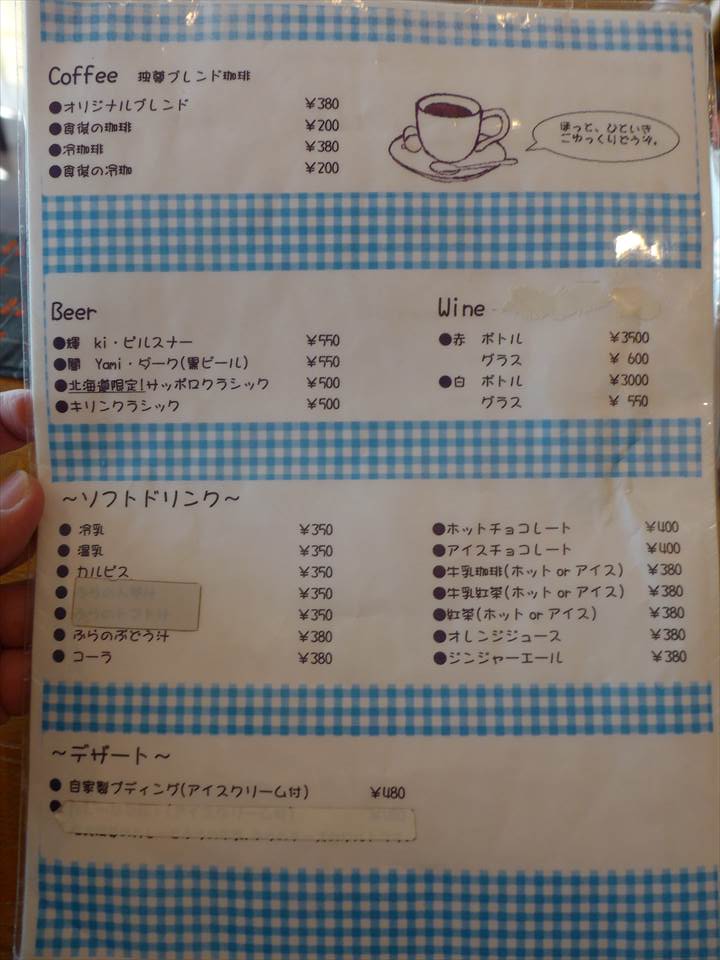 Coffee 独尊ブレンド珈琲
●オリジナルブレンド ¥380
●食後の珈琲 ¥200
●冷珈琲 ¥380
●食後の冷珈 ¥200
ほっと、ひといき
ごゆっくりどうぞ。
Beer
●輝 ki・ピルスナー ¥550
●闇 Yami・ダーク(黒ビール) ¥550
●北海道限定!サッポロクラシック ¥500
●キリンクラシック ¥500
Wine
●赤 ボトル ¥3500
グラス ¥ 600
●白 ボトル ¥3000
グラス ¥ 550
~ソフトドリンク~
● 冷乳 ¥350
● 温乳 ¥350
● カルピス ¥350
● ¥350
● ¥350
● ふらのぶどう汁 ¥380
● コーラ ¥380
●ホットチョコレート ¥400
●アイスチョコレート ¥400
●牛乳珈琲(ホット or アイス) ¥380
●牛乳紅茶(ホット or アイス) ¥380
●紅茶(ホット or アイス) ¥380
●オレンジジュース ¥380
●ジンジャーエール ¥380
~デザート~
● 自家製プディング(アイスクリーム付) ¥480